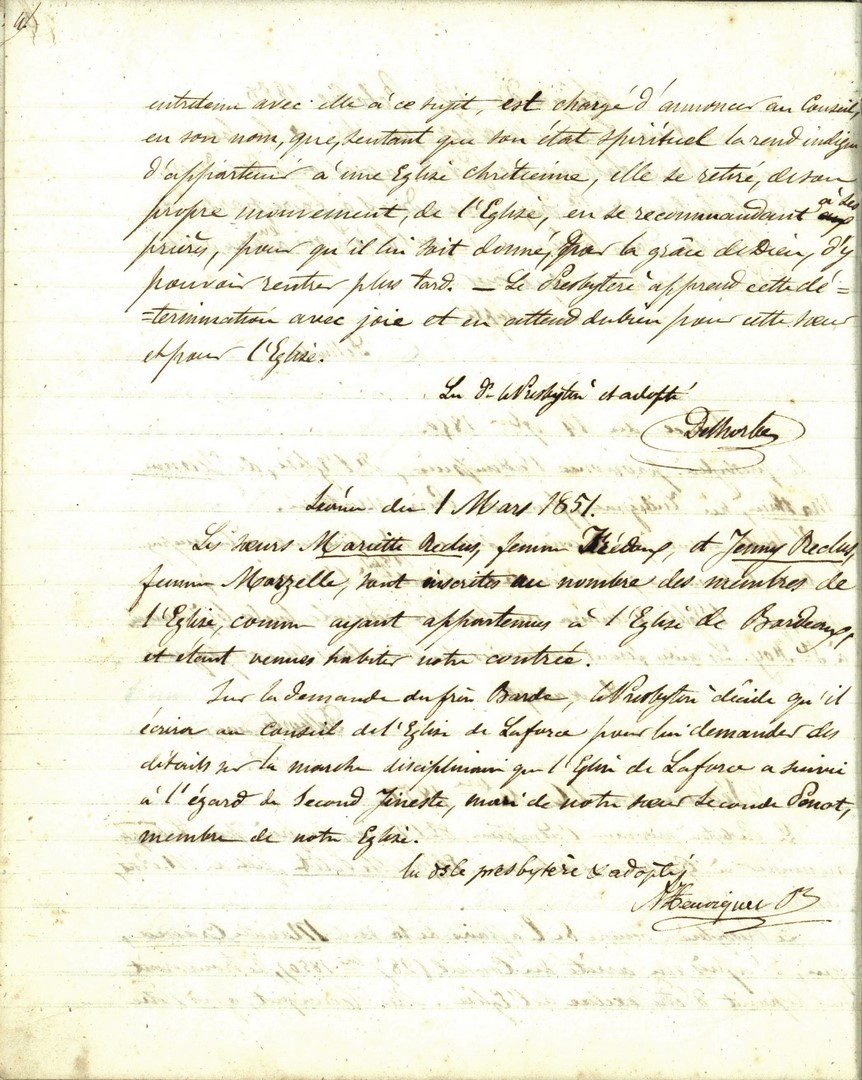 entretenu avec elle à ce sujet, est chargé d'annoncer au Conseil,
en son nom, que, sentant que son état spirituel la rend indigne
d'appartenir à une Eglise chrétienne, elle se retire, de son
propre mouvement, de l'Eglise, en se recommandant à ses
prières, pour qu'il lui soit donné, par la grâce de Dieu, d'y
pouvoir rentrer plus tard. — Le Presbytère apprend cette dé=
=termination avec joie et en attend du bien pour cette sœur
et pour l'Eglise.
Lu ds le Presbytère et adopté
Delhorbe
Séance du 1 Mars 1851.
Les sœurs Mariette Reclus, femme Trédoux, et Jenny Reclus,
femme Marzelle, sont inscrites au nombre des membres de
l'Eglise, comme ayant appartenues à l'Eglise de Bordeaux,
et étant venues habiter notre contrée.
Sur la demande du frère Barde, le Presbytère décide qu'il
écrira au conseil de l'Eglise de Laforce pour lui demander des
détails sur la marche disciplinaire que l'Eglise de Laforce a suivie
à l'égard de Second Jineste, mari de notre sœur Seconde Ponat,
membre de notre Eglise.
lu ds le presbytère & adopté
Henriquet